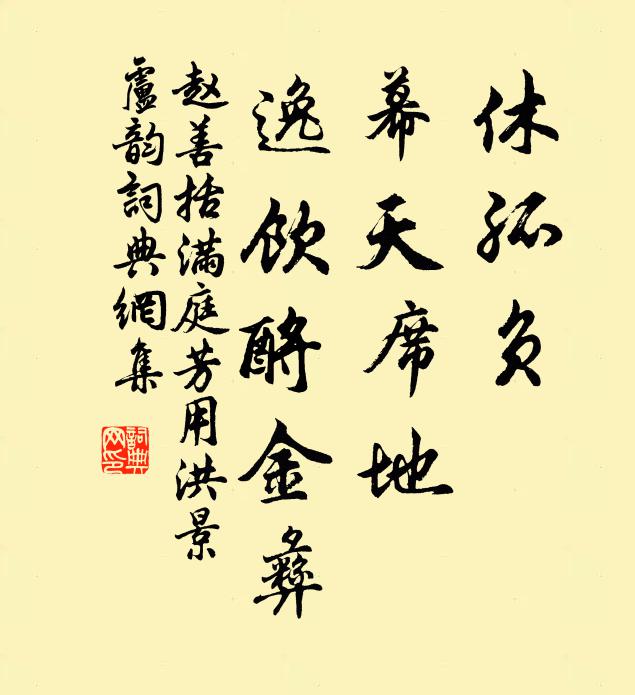 休孤负
幕天席地
逸饮酹金彝
赵善括满庭芳用洪景
盧韵詞典網集
詞典网印